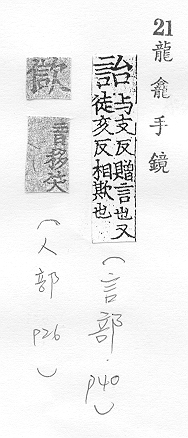 21
龍龕手鏡
詒
与支反贈言也又
徒亥反相欺也
(言部.p40)
音移
(人部 p26)